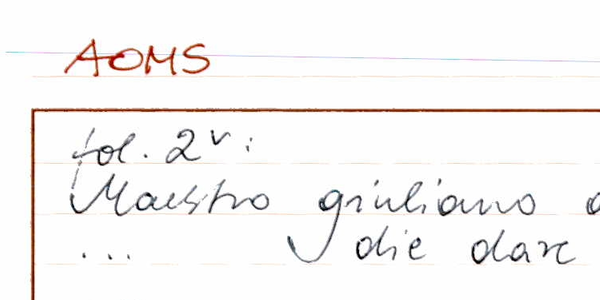 AOMS
fol. 2v:
Maestro giuliano
... die dare